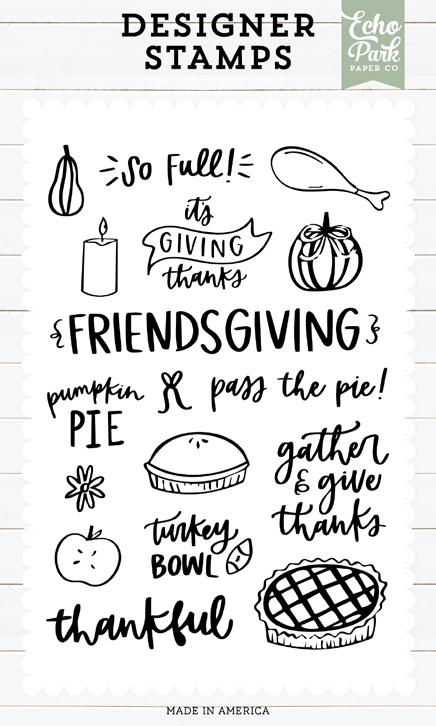 DESIGNER
STAMPS
Echo
Park
PAPER CO.
So Full!
it's
GIVING
thanks
{FRIENDSGIVING}
pumpkin
PIE
pass the pie!
gather
& give
thanks
turkey
BOWL
thankful
MADE IN AMERICA